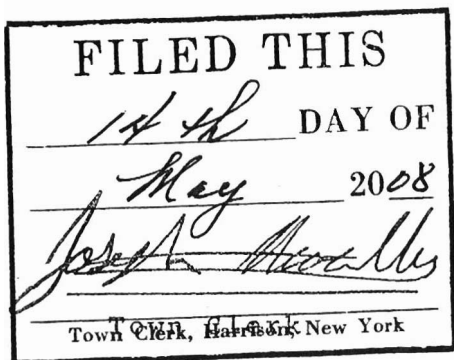 FILED THIS
DAY OF
May 2008
Joseph
Town Clerk
Town Clerk, Harrison, New York